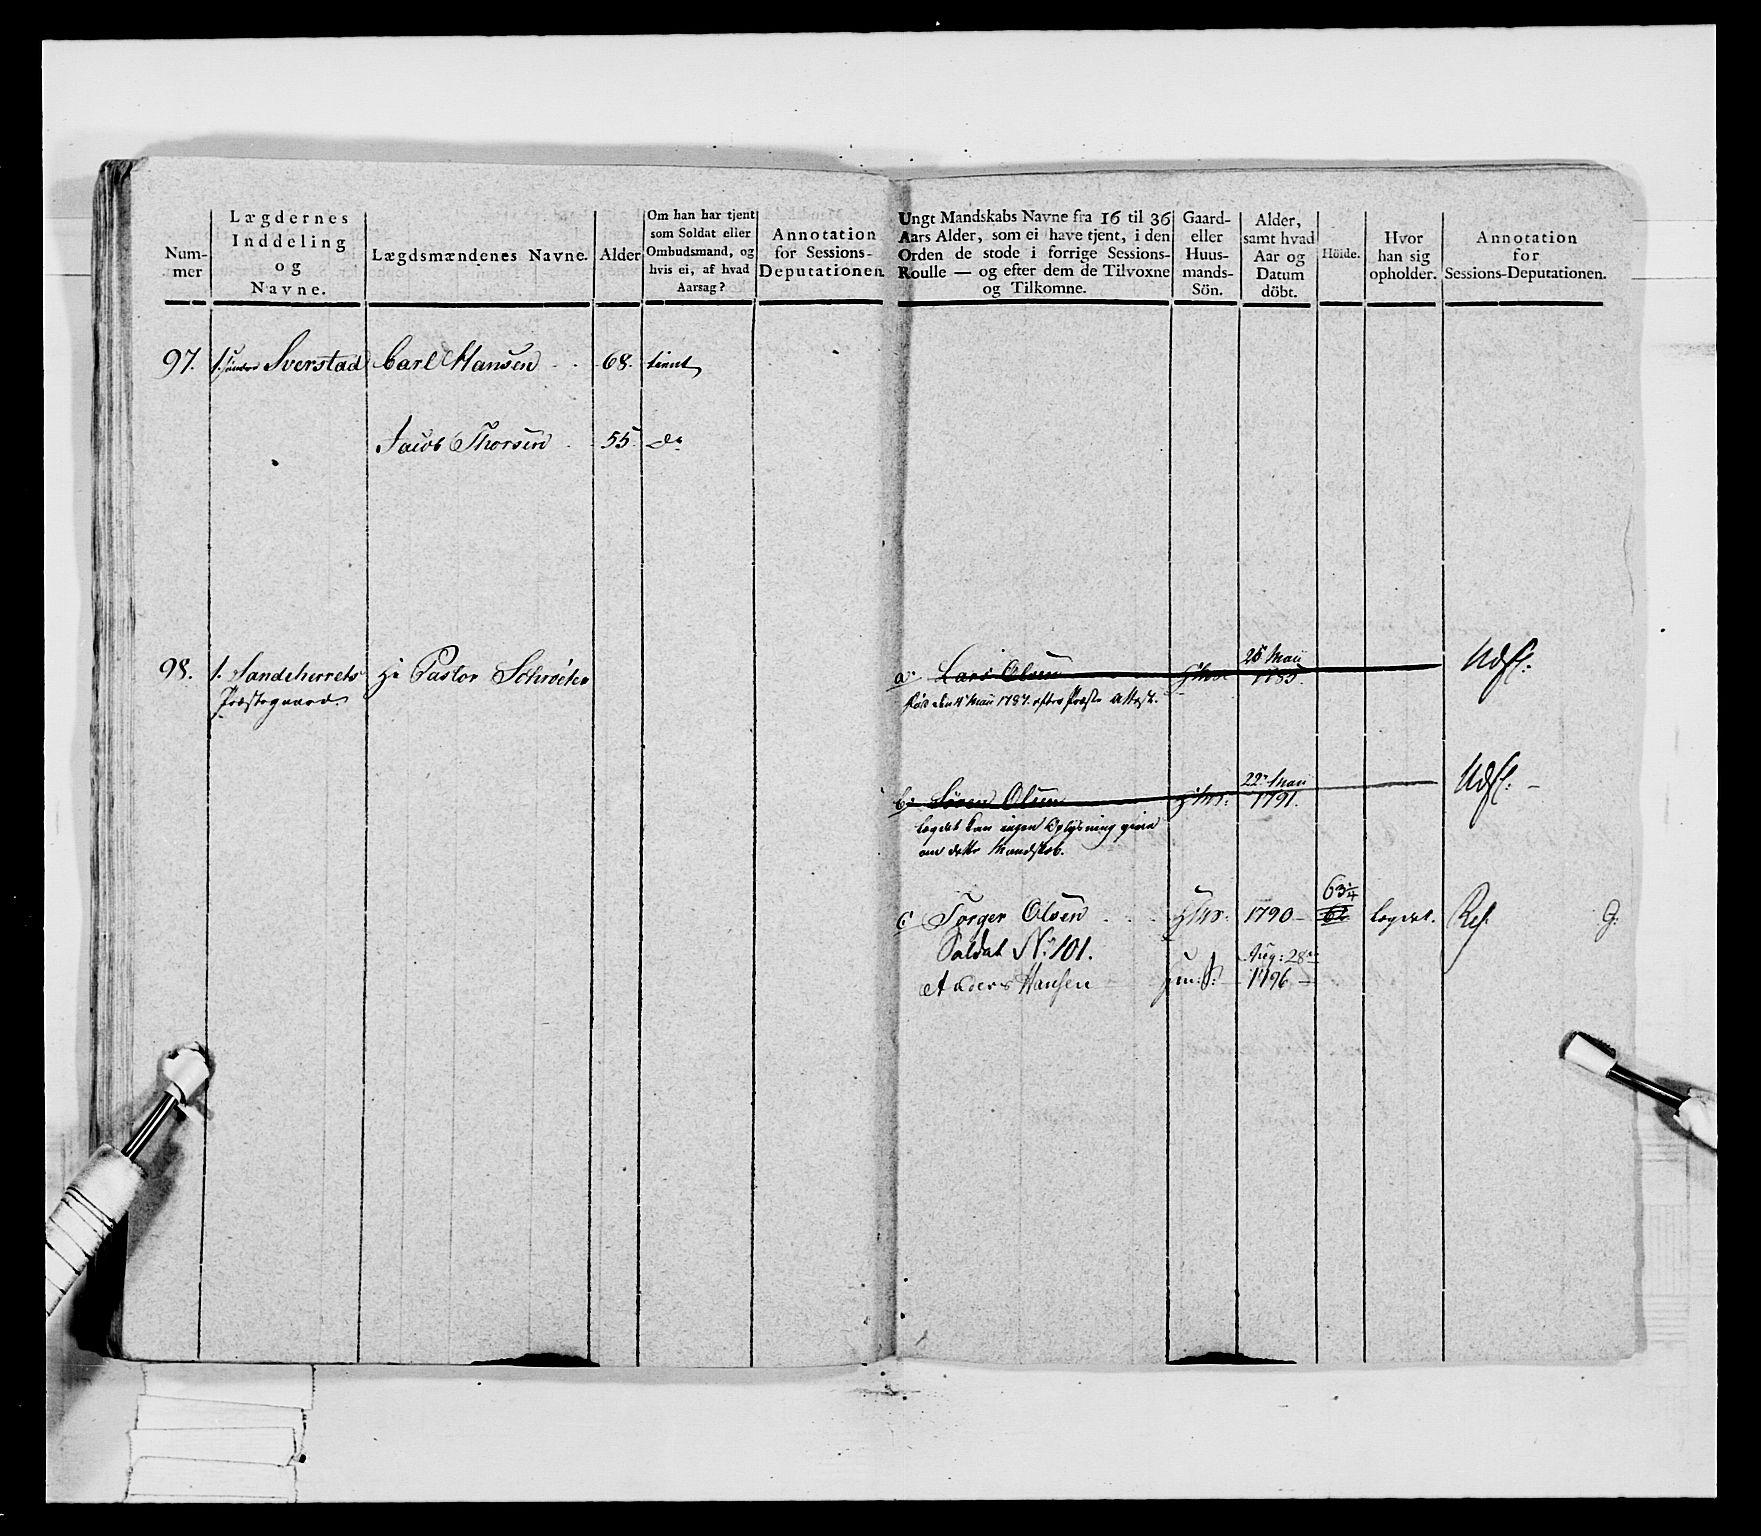 Num-
mer
Lægdernes
Inddeling
og
Navne.
Lægdsmændenes Navne.
Alder
Om han har tjent
som Soldat eller
Ombudsmand, og
hvis ei, af hvad
Aarsag?
Annotation
for Sessions-
Deputationen.
Ungt Mandskabs Navne fra 16 til 36
Aars Alder, som ei have tjent, i den
Orden de stode i forrige Sessions-
Roulle — og efter dem de Tilvoxne
og Tilkomne.
Gaard-
eller
Huus-
mands-
Sön.
Alder,
samt hvad
Aar og
Datum
döbt.
Höide.
Hvor
han sig
opholder.
Annotation
for
Sessions-Deputationen.
97. 1. Sverstad Carl Hansen 68. tient
Jacob Thorsen 55 do
98. 1. Sandeherrets Hr Pastor Schrøter
Præstegaard.
a. Lars Olsen
25 Maii
1785.
Udsl:
Død den 4 Maii 1787. efter Præste Attest.
b. Søren Olsen
22 Maii
1791.
Udsl:
Legdet kan ingen Oplysning given
om dette Mandskab.
c Torger Olsen 1790
63 1/4
62
Legdet. Ref. G:
Soldat No 101.
Anders Hansen
Aug: 28
1796